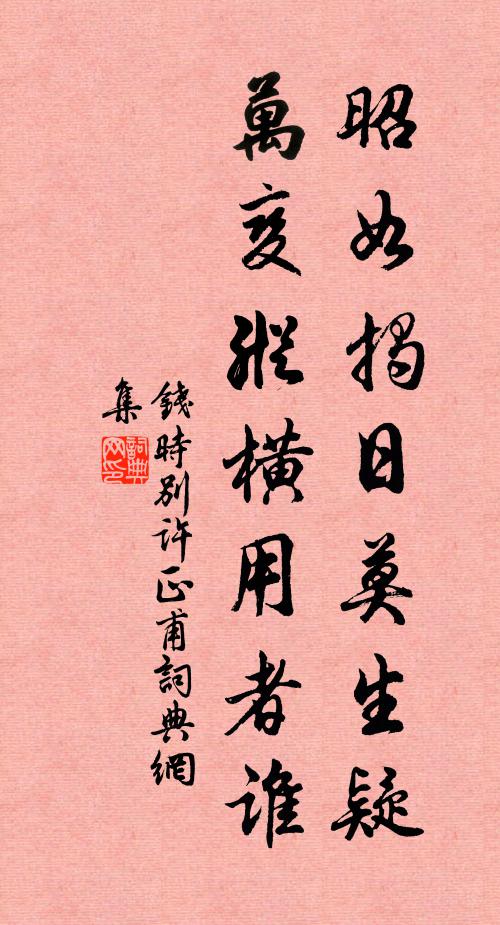 昭如揭日莫生疑
萬变縱橫用者誰
錢時別許正甫詞典網
集
詞典网印